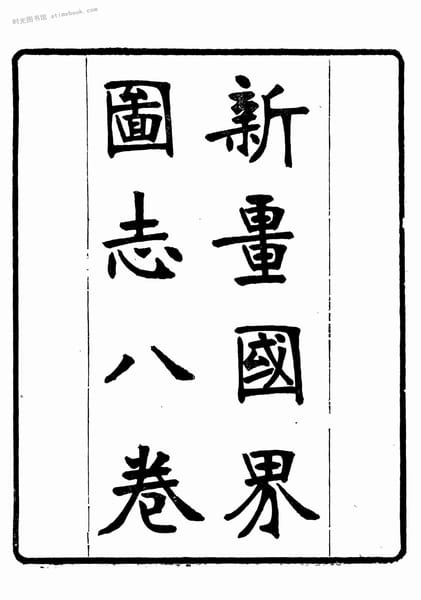 时光图书馆 stimebook.com
新畺國界
圖志八卷